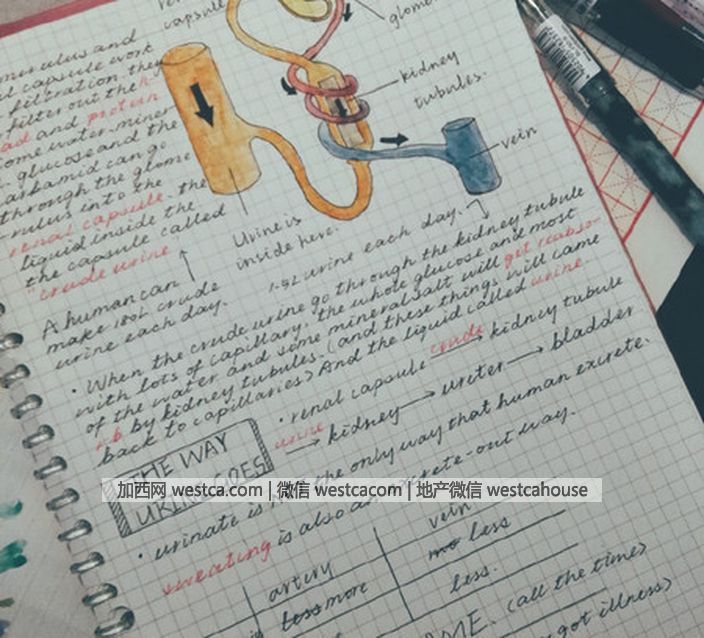 capsule
glome
kidney
tubules.
vein
Urine is
inside here.
merulus and
capsule work
filtration. they
filter out the
and protein
some water, miner
glucose and the
carbamid can go
through the glome
-rulus into the
renal capsule. the
liquid inside the
the capsule called
"crude urine
A human can
make 180L crude
urine each day.
1-2L urine each day.
· When the crude urine go through the kidney tubule
with lots of capillary. the whole glucose and most
of the water and some mineral salt will get reabso-
r.b by kidney tubules. (and these things will came
back to capillaries) And the liquid called urine.
THE WAY
URINE GOES
· renal capsule crude → kidney tubule
urine → kidney → ureter → bladder
· urinate is the only way that human excrete.
sweating is also excrete-out way.
加西网 westca.com | 微信 westcacom | 地产微信 westcahouse
artery vein
less more less
less.
(all the time)
got illness)